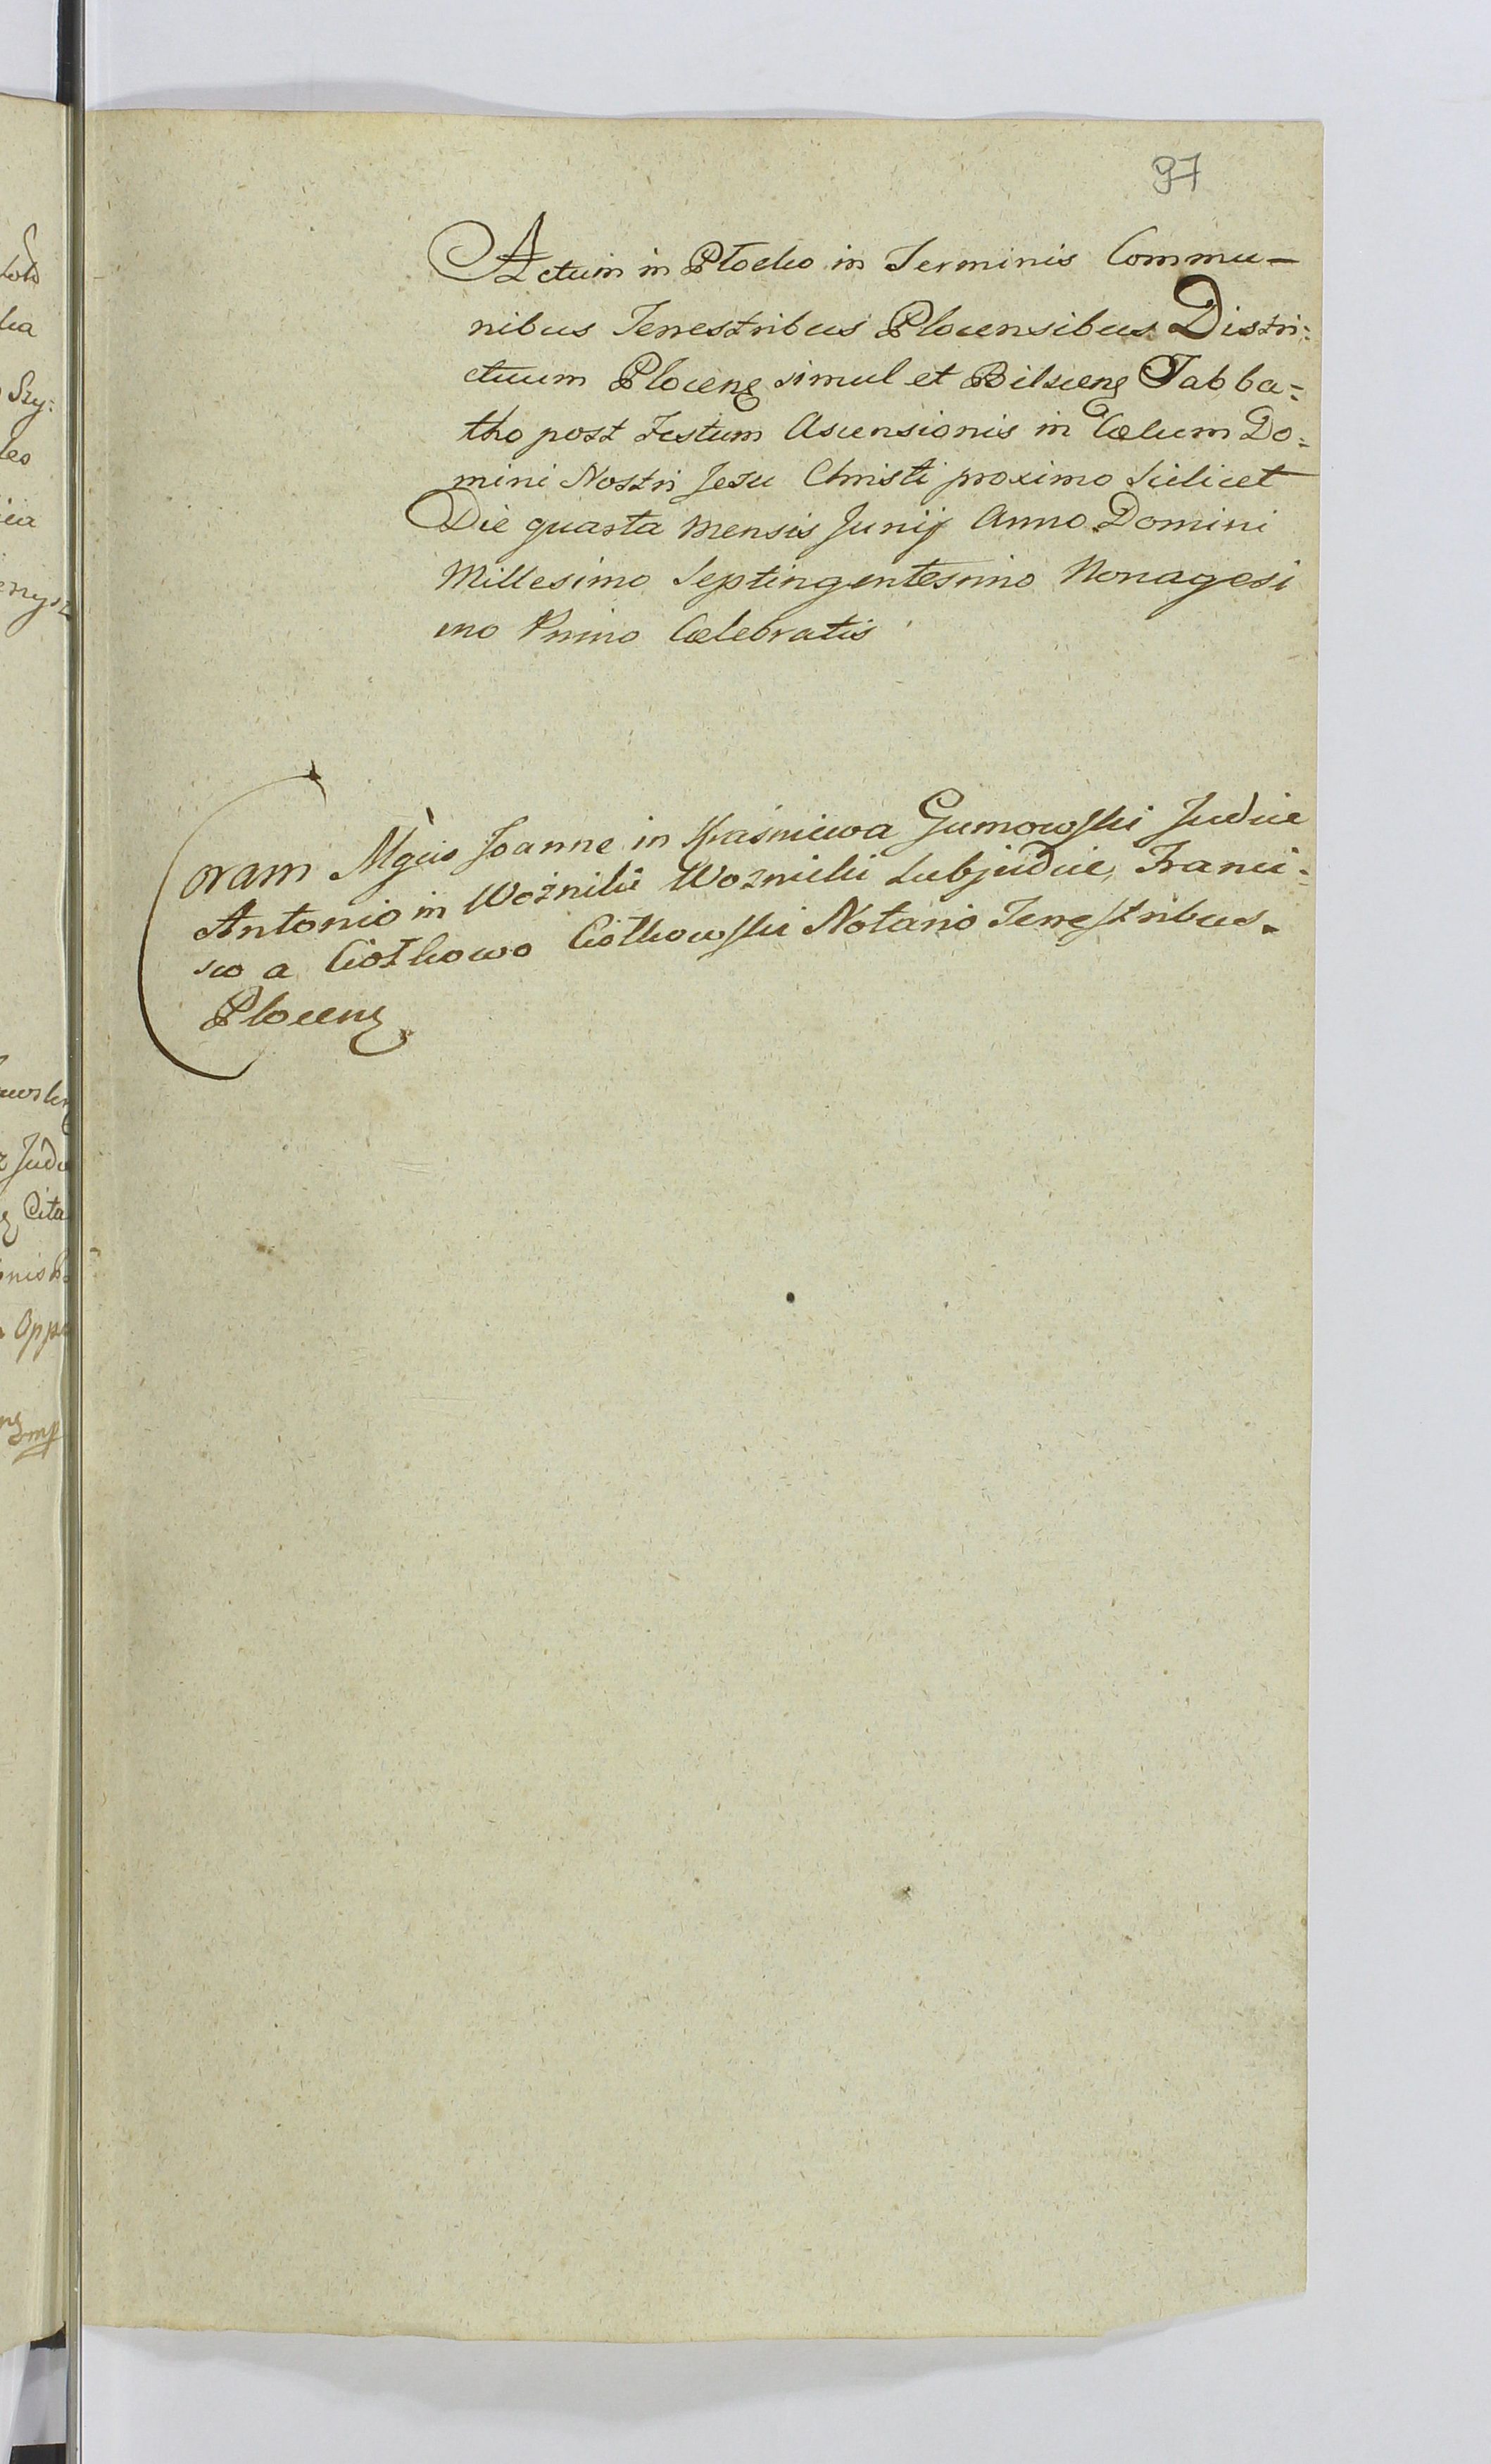 97
Actum in Płocko in Terminis Commu-
nibus Terrestribus Plocensibus Distri:
ctuum Plocen simul et Bilscen Sabba=
tho post Festum Ascensionis in Cælum Do=
mini Nostri Jesu Christi proximo Scilicet
Die quarta Mensis Junij Anno Domini
Millesimo Septingentesimo Nonagesi
mo Primo Cælebratis
Coram Mgco Joanne in Kraśniewa Gumowski Judice
Antonio in Woźniki Woznicki Subjudice, Franci:
sco a Ciołkowo Ciołkowski Notario Terrestribus.
Plocen